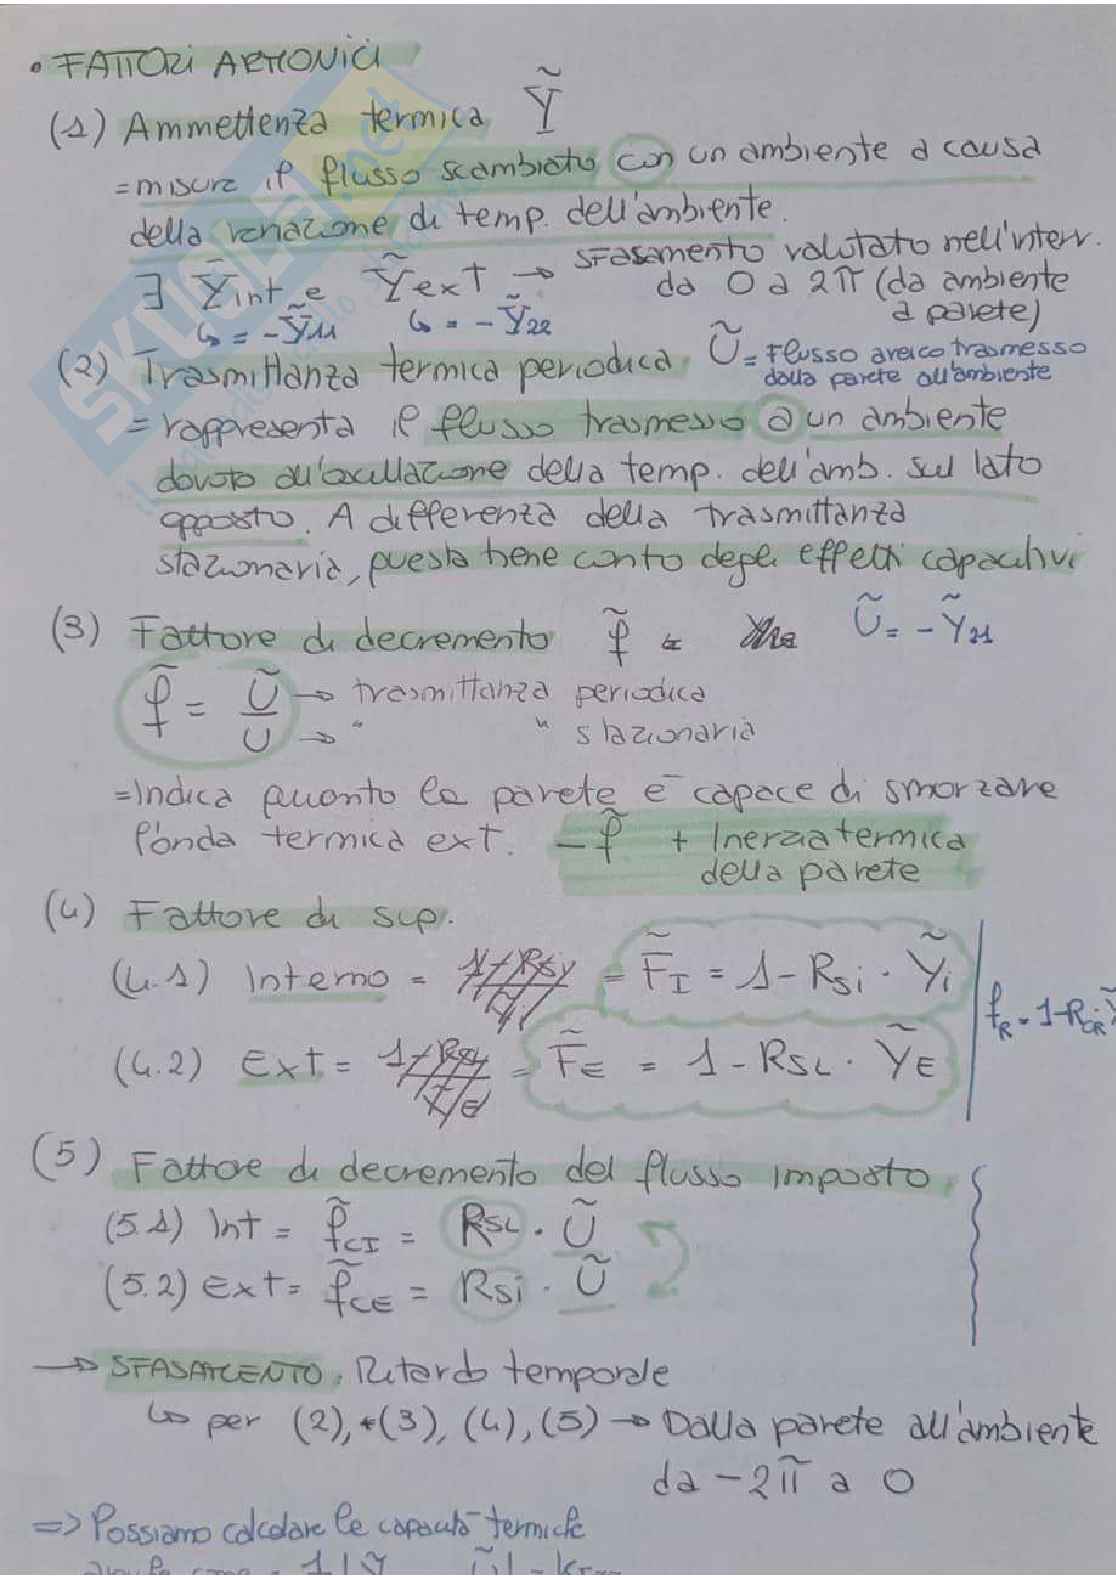 • FATTORI ARMONICI
(1) Ammettenza termica Ỹ
= misura il flusso scambiato con un ambiente a causa
della variazione di temp. dell'ambiente.
∃ Ỹint e Ỹext → sfasamento valutato nell'interv.
da 0 a 2π (da ambiente
a parete)
↳ = -Ỹ11 ↳ = -Ỹ22
(2) Trasmittanza termica periodica Ũ = Flusso areico trasmesso
dalla parete all'ambiente
= rappresenta il flusso trasmesso a un ambiente
dovuto all'oscillazione della temp. dell'amb. sul lato
opposto. A differenza della trasmittanza
stazionaria, questa tiene conto degli effetti capacitivi
(3) Fattore di decremento f̃ = Ũ = -Ỹ21
f̃ = Ũ → trasmittanza periodica
U → " " stazionaria
= Indica quanto la parete è capace di smorzare
l'onda termica ext. - f̃ + Inerzia termica
della parete
(4) Fattore di sup.
(4.1) Interno = = F̃I = 1 - Rsi · Ỹi
fR = 1 - RCR
(4.2) Ext = = F̃E = 1 - RSL · ỸE
(5) Fattore di decremento del flusso imposto
(5.1) Int = f̃CI = RSL · Ũ
(5.2) Ext = f̃CE = Rsi · Ũ
→ SFASAMENTO. Ritardo temporale
↳ per (2), (3), (4), (5) → Dalla parete all'ambiente
da -2π a 0
=> Possiamo calcolare le capacità termiche